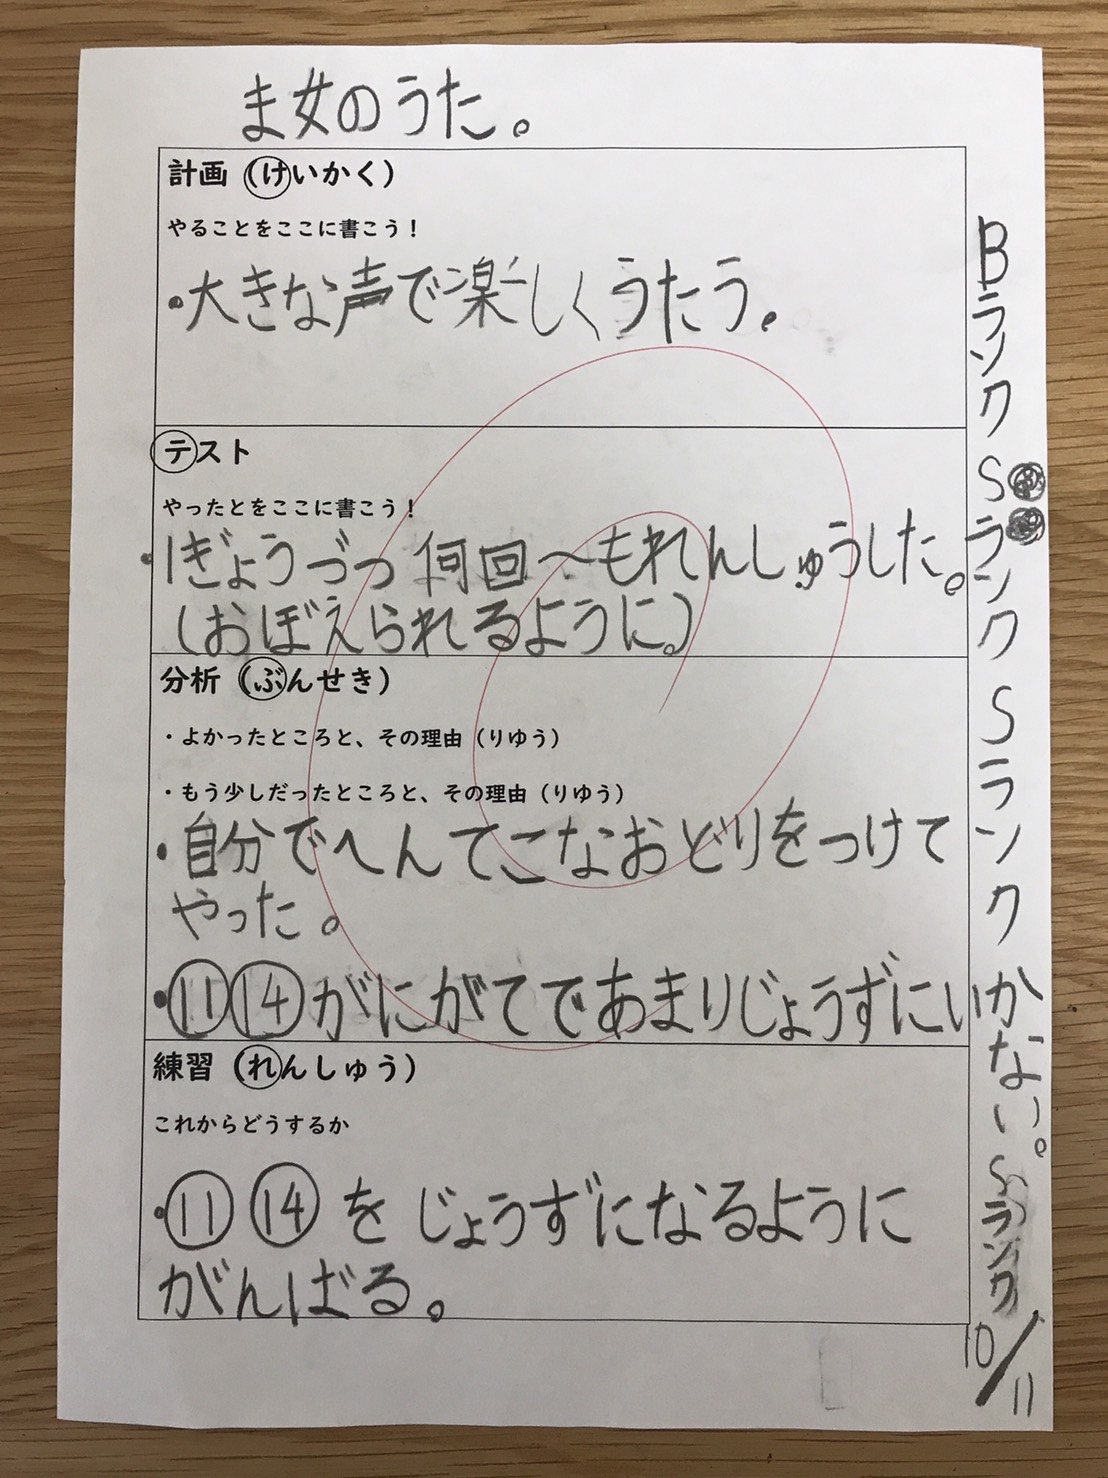 ま女のうた。
計画（けいかく）
やることをここに書こう！
・大きな声で楽しくうたう。
Bランク
テスト
やったとをここに書こう！
・1ぎょうづつ何回〜もれんしゅうした。
(おぼえられるように。)
Sランク
分析（ぶんせき）
・よかったところと、その理由（りゆう）
・もう少しだったところと、その理由（りゆう）
・自分でへんてこなおどりをつけて
やった。
Sランク
・⑪⑭がにがてであまりじょうずにいかない。
練習（れんしゅう）
これからどうするか
・⑪ ⑭ を じょうずになるように
がんばる。
Sランク
10/11